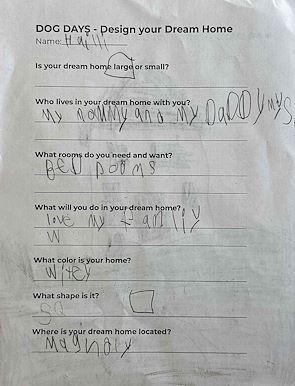 DOG DAYS - Design your Dream Home
Name:
Is your dream home large or small?
Who lives in your dream home with you?
My mommy and My DaDDy mys
What rooms do you need and want?
BeD rooms
What will you do in your dream home?
love my family
W
What color is your home?
witey
What shape is it?
Where is your dream home located?
Magnoly